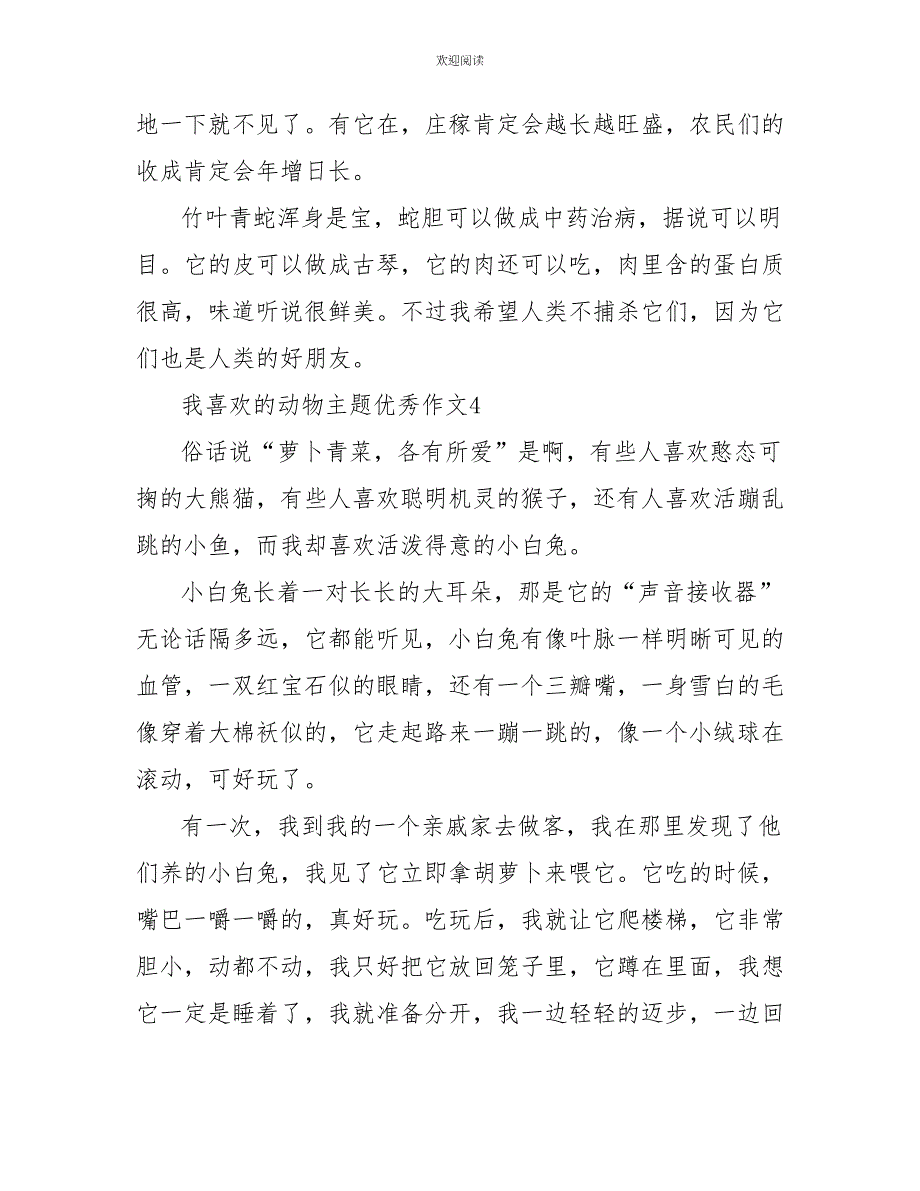 欢迎阅读
地一下就不见了。有它在，庄稼肯定会越长越旺盛，农民们的
收成肯定会年增日长。
竹叶青蛇浑身是宝，蛇胆可以做成中药治病，据说可以明
目。它的皮可以做成古琴，它的肉还可以吃，肉里含的蛋白质
很高，味道听说很鲜美。不过我希望人类不捕杀它们，因为它
们也是人类的好朋友。
我喜欢的动物主题优秀作文4
俗话说“萝卜青菜，各有所爱”是啊，有些人喜欢憨态可
掬的大熊猫，有些人喜欢聪明机灵的猴子，还有人喜欢活蹦乱
跳的小鱼，而我却喜欢活泼得意的小白兔。
小白兔长着一对长长的大耳朵，那是它的“声音接收器”
无论话隔多远，它都能听见，小白兔有像叶脉一样明晰可见的
血管，一双红宝石似的眼睛，还有一个三瓣嘴，一身雪白的毛
像穿着大棉袄似的，它走起路来一蹦一跳的，像一个小绒球在
滚动，可好玩了。
有一次，我到我的一个亲戚家去做客，我在那里发现了他
们养的小白兔，我见了它立即拿胡萝卜来喂它。它吃的时候，
嘴巴一嚼一嚼的，真好玩。吃玩后，我就让它爬楼梯，它非常
胆小，动都不动，我只好把它放回笼子里，它蹲在里面，我想
它一定是睡着了，我就准备分开，我一边轻轻的迈步，一边回